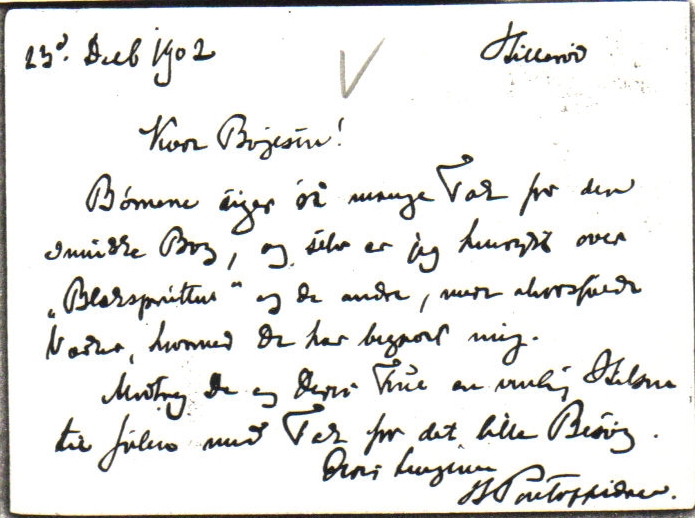 23d. Decb 1902 Hillerød
Kære Bojesen!
Børnene siger så mange Tak for den
smukke Bog, og selv er jeg henrykt over
„Blæksprutten“ og de andre, mere alvorsfulde
Værker, hvormed De har begavet mig.
Modtag De og Deres Frue en venlig Hilsen
til Julen med Tak for det lille Besøg.
Deres hengivne
H Pontoppidan.